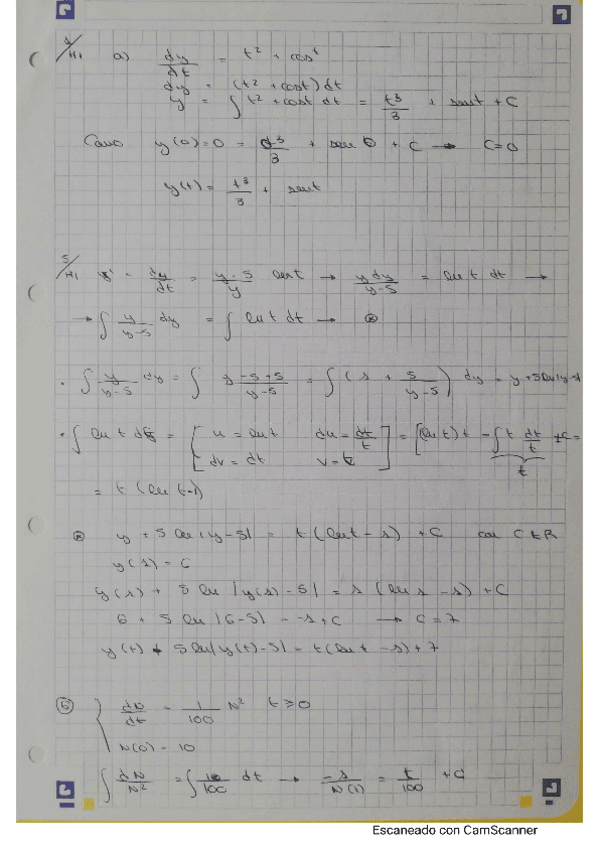 4/H1 a) dy/dt = t² + cos t
dy = (t² + cost) dt
y = ∫ t² + cost dt = t³/3 + sent + C
Como y(0) = 0 = 0³/3 + sen 0 + C → C=0
y(t) = t³/3 + sent
5/H1 y' = dy/dt = y-5/y ln t → y dy/y-5 = ln t dt →
→ ∫ y/y-5 dy = ∫ ln t dt → ⊛
· ∫ y/y-5 dy = ∫ y-5+5/y-5 = ∫ (1 + 5/y-5) dy = y + 5 ln|y-5|
· ∫ ln t dt = [u = ln t du = dt/t dv = dt v = t] = [(ln t) t - ∫ t dt/t + C =
t
= t (ln t-1)
⊛ y + 5 ln |y-5| = t (ln t - 1) + C con C ∈ R
y(1) = 6
y(1) + 5 ln |y(1) - 5| = 1 (ln 1 - 1) + C
6 + 5 ln |6-5| = -1 + C → C = 7
y(t) + 5 ln|y(t)-5| = t (ln t - 1) + 7
6 { dN/dt = 1/100 N² t ≥ 0
N(0) = 10
∫ dN/N² = ∫ 1/100 dt → -1/N(t) = t/100 + C
Escaneado con CamScanner